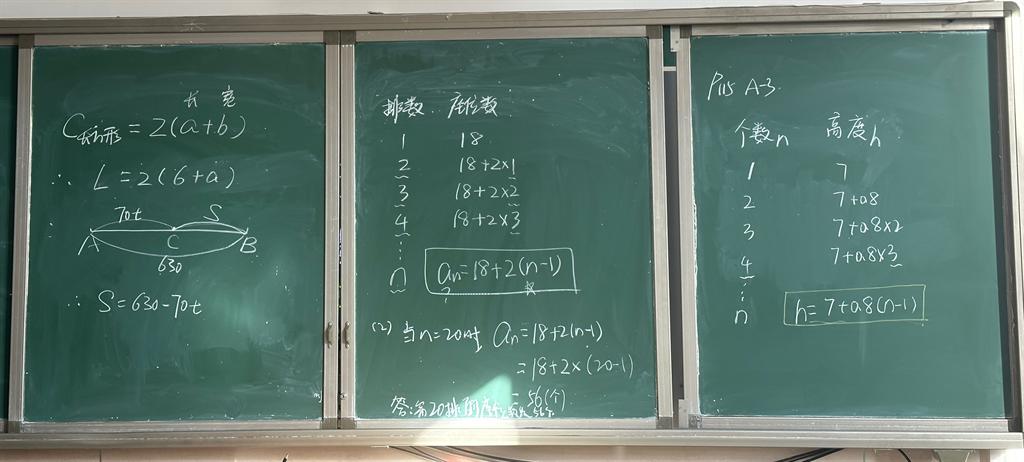 长 宽
C长方形 = 2(a+b)
∴ L = 2(6+a)
70t S
A C B
630
∴ S = 630-70t
排数 座位数
1 18
2 18+2×1
3 18+2×2
4 18+2×3
⋮
n an=18+2(n-1)
(2) 当n=20时 an=18+2(n-1)
=18+2×(20-1)
=56(个)
答:第20排的座位数为56个
P115 A-3
个数n 高度h
1 7
2 7+0.8
3 7+0.8×2
4 7+0.8×3
⋮
n h=7+0.8(n-1)